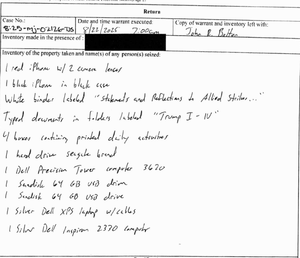 Return
Case No.: Date and time warrant executed: Copy of warrant and inventory left with:
8:25-mj-02126-TJS 8/22/2025 7:00am John R. Bolton
Inventory made in the presence of :
Inventory of the property taken and name(s) of any person(s) seized:
1 red iPhone w/ 2 camera lenses
1 black iPhone in black case
White binder labeled "Statements and Reflections to Allied Strikes..."
Typed documents in folders labeled "Trump I - IV"
4 boxes containing printed daily activities
1 hard drive seagate brand
1 Dell Precision Tower computer 3620
1 Sandisk 64 GB USB drive
1 Sandisk 64 GB USB drive
1 Silver Dell XPS laptop w/cables
1 Silver Dell Inspiron 2330 computer